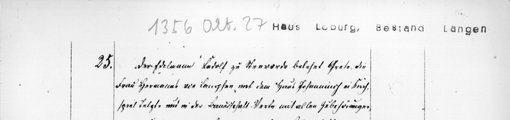 1356 Okt. 27 Haus Loburg, Bestand Langen
25. Der Edelmann Rudolf zu Steinvorde belehnt Grete, die
Frau Hermanns von Langhen, mit dem Haus
und in der Bauerschaft mit allen Zubehörungen